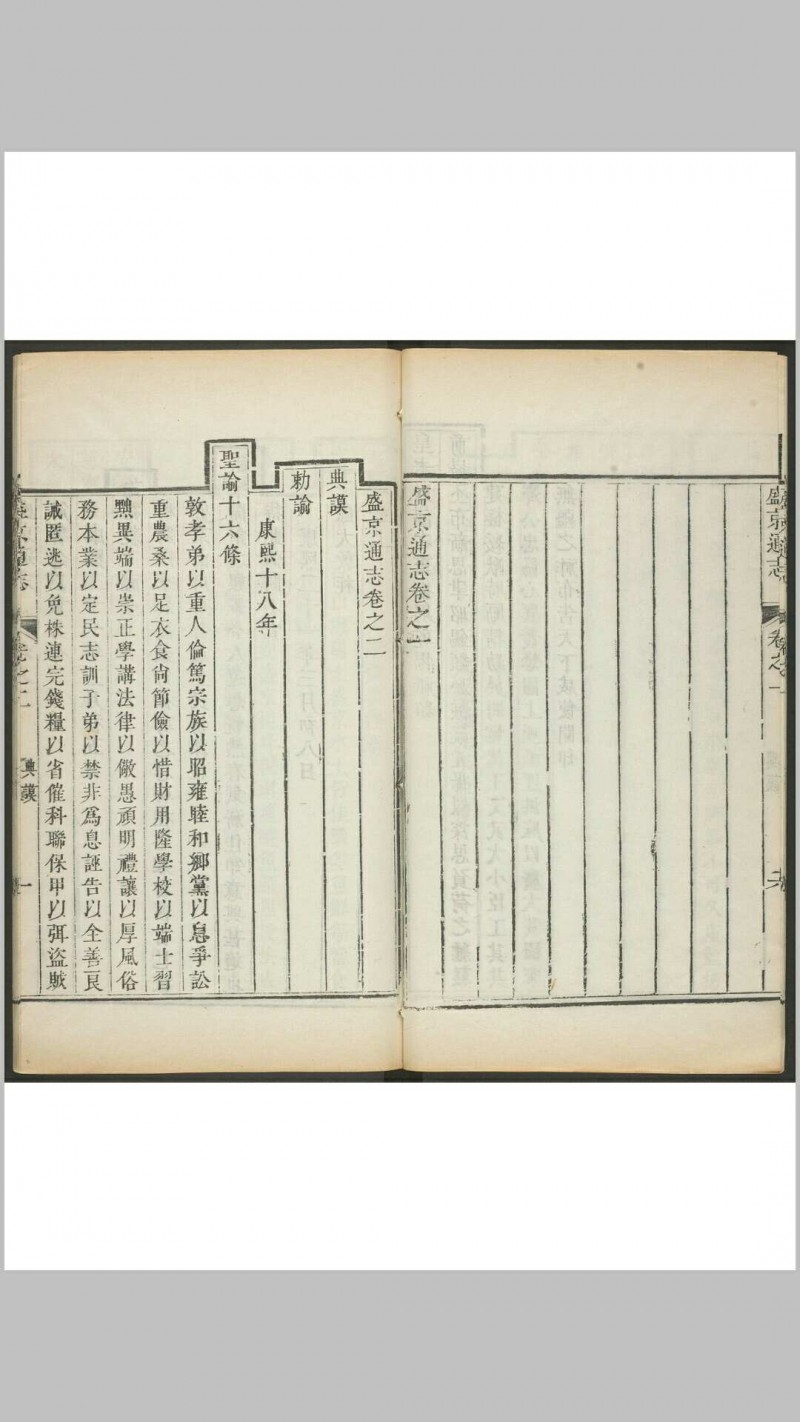 盛京通志
卷之一
十六
盛京通志卷之一
盛京通志卷之二
典謨
勅諭
康熙十八年
聖諭十六條
敦孝弟以重人倫篤宗族以昭雍睦和鄉黨以息爭訟
重農桑以足衣食尙節儉以惜財用隆學校以端士習
黜異端以崇正學講法律以儆愚頑明禮讓以厚風俗
務本業以定民志訓子弟以禁非爲息誣告以全善良
誡匿逃以免株連完錢糧以省催科聯保甲以弭盜賊
卷之二
典謨
一